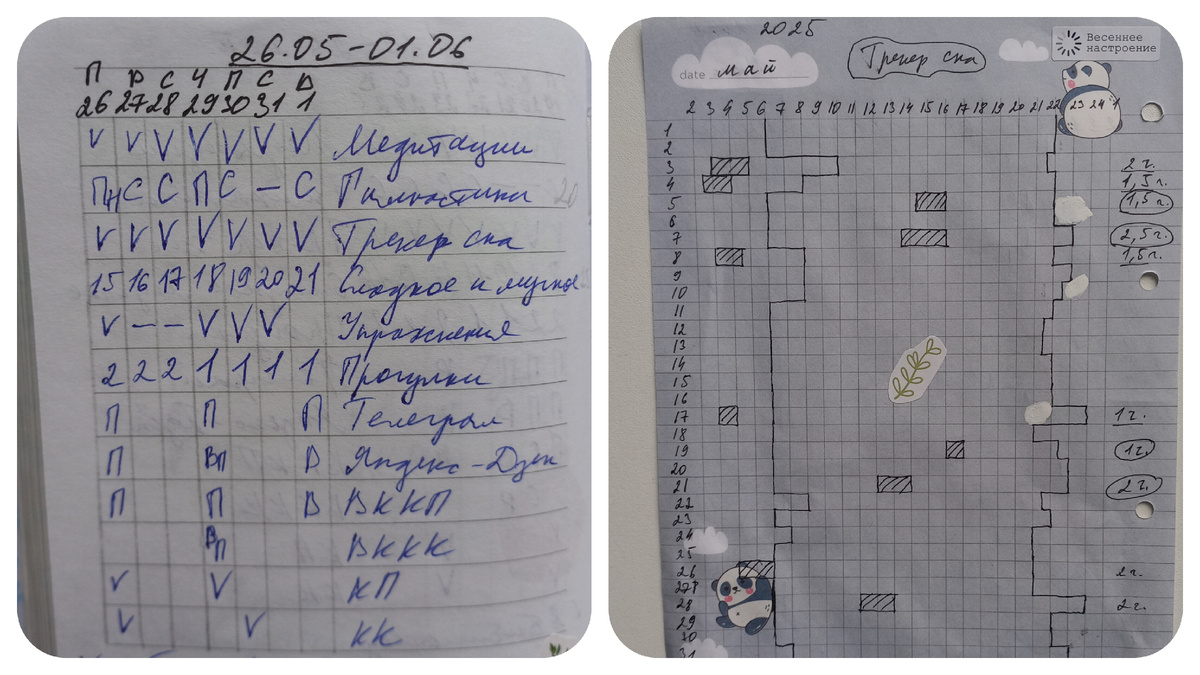 26.05-01.06
П В С Ч П С В
26 27 28 29 30 31 1
V V V V V V V Медитации
ПН С С П С — С Гимнастики
V V V V V V V Трекер сна
15 16 17 18 19 20 21 Сладкое и мучное
V — — V V V Упражнения
2 2 2 1 1 1 1 Прогулки
П П П Телеграм
П ВП В Яндекс-Дзен
П П В ВККП
ВП ВККК
V V КП
V V КК
2025
date май
Трекер сна
Весеннее
настроение
2 3 4 5 6 7 8 9 10 11 12 13 14 15 16 17 18 19 20 21 22 23 24 1
1
2
3 2 г.
4 1,5 г.
5 1,5 г.
6
7 2,5 г.
8 1,5 г.
9
10
11
12
13
14
15
16
17 1 г.
18
19 1 г.
20
21 2 г.
22
23
24
25
26 2 г.
27
28 2 г.
29
30
31